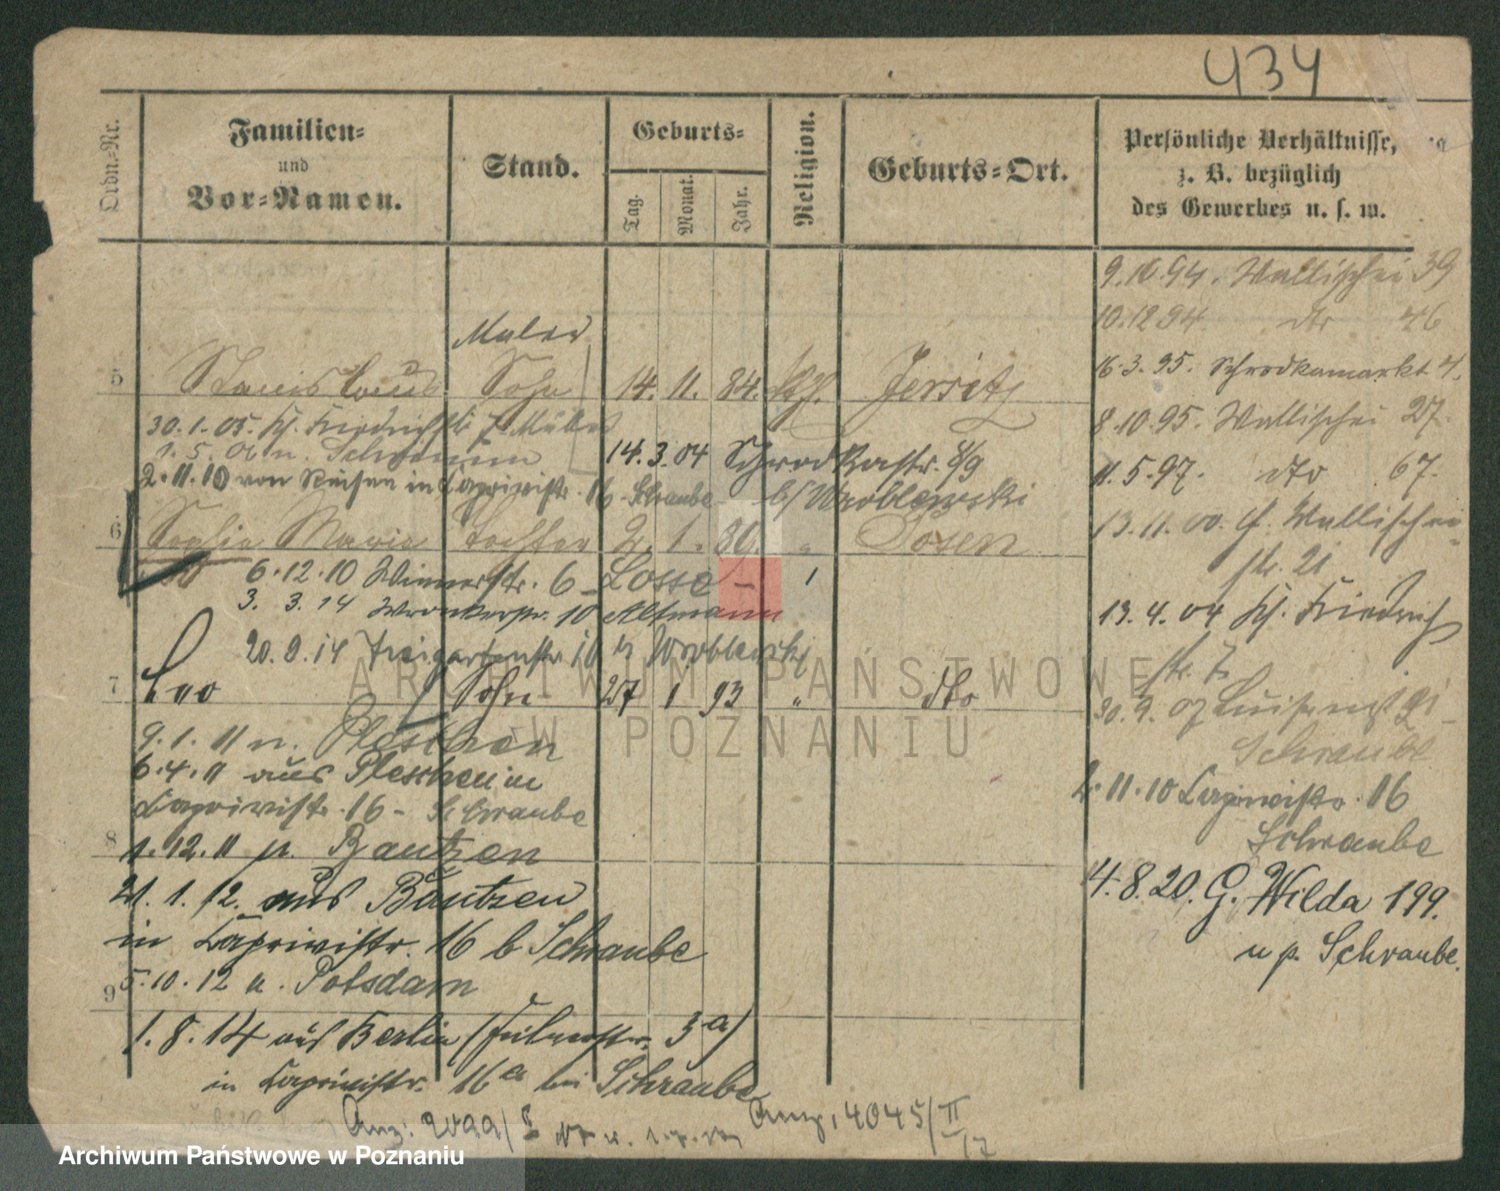 434
Ordn.-Nr.
Familien-
und
Vor-Namen.
Stand.
Geburts-
Tag.
Monat.
Jahr.
Religion.
Geburts-Ort.
Persönliche Verhältnisse,
z. B. bezüglich
des Gewerbes u. s. w.
9.10.94. Wallischei 39
10.12.94 dto 46
16.3.95. Schrodkamarkt 4.
8.10.95. Wallischei 27.
11.5.97. dto 67.
13.11.00. Wallischei
str. 21
13.4.04 Kl. Friedrich
str. 7.
30.9.07 Luisenst
Schraube
2.11.10 Caprivistr. 16
Schraube
4.8.20. G. Wilda 199.
u p. Schraube.
Maler
5 Stanislaus Sohn 14. 11. 84. kath. Jersitz
30.1.05. Kl. Friedrichstr 7 Müller
1.5.06 n. Schwerin
14.3.04 Schrodkastr. 8/9
b/ Wroblewski
2.11.10 von in Caprivistr. 16 - Schraube
6 Sophie Marie Tochter 2. 1. 89. " Posen
6.12.10 Wienerstr. 6 - Losse -
3. 3. 14 Wronkerstr. 10 Altmann
20.9.14 Tiergartenstr 16 b Wroblewski
7 Leo Sohn 27 1 93 " dto
9.1.11 n. Pleschen
6.4.11 aus Pleschen in
Caprivistr. 16 - Schraube
8
1.12.11 n. Bautzen
21.1.12. aus Bautzen
in Caprivistr. 16 b Schraube
5.10.12 n. Potsdam
9
1.8.14 aus Berlin ( 3a)
in Caprivistr. 16a bei Schraube
Anz: 2099/
Anz. 4045/II
17
ARCHIWUM PAŃSTWOWE
W POZNANIU
Archiwum Państwowe w Poznaniu